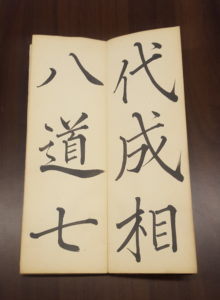 代成相
八道七